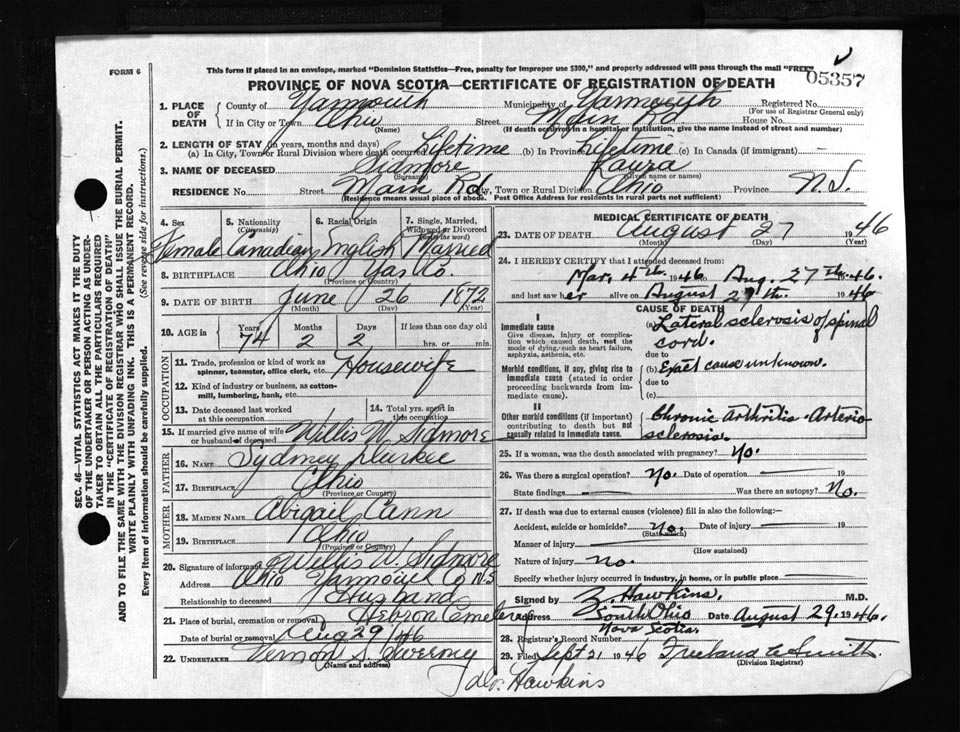 FORM 6
This form if placed in an envelope, marked "Dominion Statistics—Free, penalty for improper use $300," and properly addressed will pass through the mail "FREE"
05357
PROVINCE OF NOVA SCOTIA—CERTIFICATE OF REGISTRATION OF DEATH
1. PLACE OF DEATH County of Yarmouth Municipality of Yarmouth Registered No.
(For use of Registrar General only)
If in City or Town Ohio Street Main Rd House No.
(Name) (If death occurred in a hospital or institution, give the name instead of street and number)
2. LENGTH OF STAY (in years, months and days)
(a) In City, Town or Rural Division where death occurred Lifetime (b) In Province Lifetime (c) In Canada (if immigrant) -
3. NAME OF DECEASED Laura
(Surname) (Given name or names)
RESIDENCE No. Street Main Rd. City, Town or Rural Division Ohio Province N.S.
(Residence means usual place of abode. Post Office Address for residents in rural parts not sufficient)
4. Sex 5. Nationality (Citizenship) 6. Racial Origin 7. Single, Married, Widowed or Divorced (Write the word)
Female Canadian English Married
8. BIRTHPLACE Ohio Yar. Co.
(Province or Country)
9. DATE OF BIRTH June 26 1872
(Month) (Day) (Year)
10. AGE in Years Months Days If less than one day old
74 2 2 hrs. or min.
OCCUPATION
11. Trade, profession or kind of work as spinner, teamster, office clerk, etc. Housewife
12. Kind of industry or business, as cotton-mill, lumbering, bank, etc.
13. Date deceased last worked at this occupation 14. Total yrs. spent in this occupation
15. If married give name of wife or husband of deceased Willis W. Sidmore
FATHER
16. NAME Sydney Durkee
17. BIRTHPLACE Ohio
(Province or Country)
MOTHER
18. MAIDEN NAME Abigail Cann
19. BIRTHPLACE Ohio
(Province or Country)
20. Signature of informant Willis W. Sidmore
Address Ohio Yarmouth Co N.S
Relationship to deceased Husband
21. Place of burial, cremation or removal Hebron Cemetery
Date of burial or removal Aug 29/46
22. UNDERTAKER Vernon S. Sweeney
(Name and address)
MEDICAL CERTIFICATE OF DEATH
23. DATE OF DEATH August 27 1946
(Month) (Day) (Year)
24. I HEREBY CERTIFY that I attended deceased from:
Mar. 4th 1946 to Aug. 27th. 1946.
and last saw her alive on August 27th. 1946
CAUSE OF DEATH
I
Immediate cause
Give disease, injury or complication which caused death, not the mode of dying, such as heart failure, asphyxia, asthenia, etc.
(a) Lateral sclerosis of spinal cord.
due to
Morbid conditions, if any, giving rise to immediate cause (stated in order proceeding backwards from immediate cause).
(b) Exact cause unknown.
due to
(c)
II
Other morbid conditions (if important) contributing to death but not causally related to immediate cause.
Chronic arthritis. Arterio sclerosis.
25. If a woman, was the death associated with pregnancy? No.
26. Was there a surgical operation? No. Date of operation 19
State findings Was there an autopsy? No.
27. If death was due to external causes (violence) fill in also the following:—
Accident, suicide or homicide? no. Date of injury 19
(State which)
Manner of injury
(How sustained)
Nature of injury no.
Specify whether injury occurred in industry, in home, or in public place
Signed by Z. Hawkins, M.D.
Address South Ohio Nova Scotia. Date August 29, 1946.
28. Registrar's Record Number
29. Filed Sept 21 1946 Freeland E Smith
(Division Registrar)
Hawkins
SEC. 46—VITAL STATISTICS ACT MAKES IT THE DUTY OF THE UNDERTAKER OR PERSON ACTING AS UNDERTAKER TO OBTAIN ALL THE PARTICULARS REQUIRED IN THE "CERTIFICATE OF REGISTRATION OF DEATH" AND TO FILE THE SAME WITH THE DIVISION REGISTRAR WHO SHALL ISSUE THE BURIAL PERMIT.
WRITE PLAINLY WITH UNFADING INK. THIS IS A PERMANENT RECORD.
Every item of information should be carefully supplied. (See reverse side for instructions.)